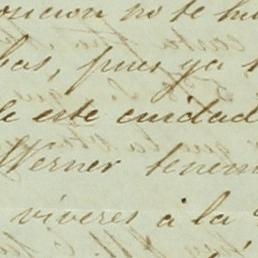 no te
bas, pues ya
este cuidad
Werner tenem
viveres á la